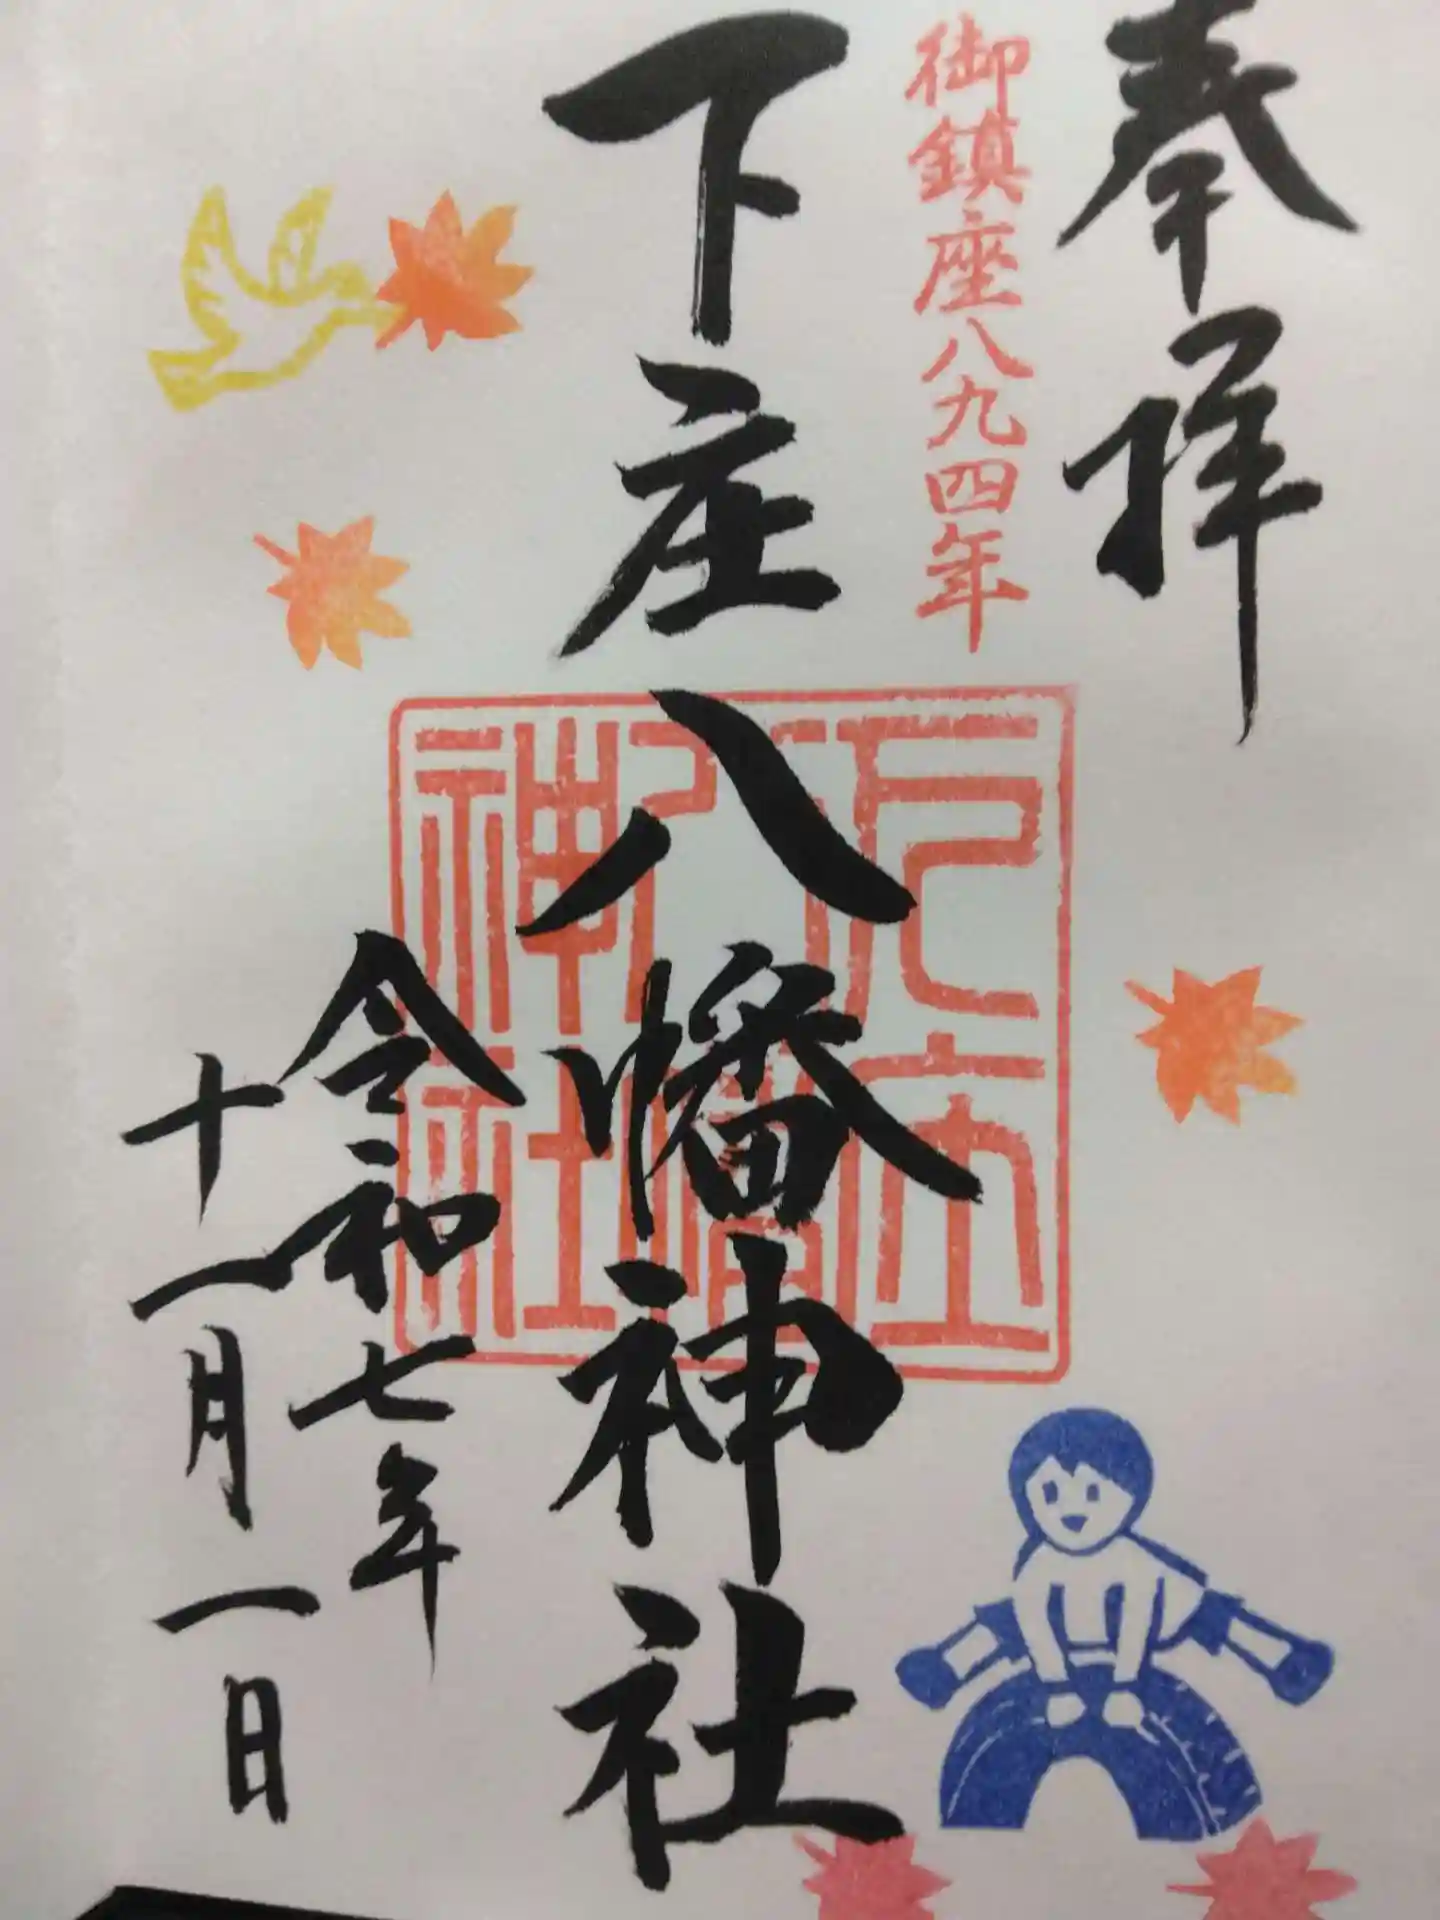 奉拝
御鎮座八九四年
下座八幡神社
下座
八幡
神社
令和七年
十一月一日